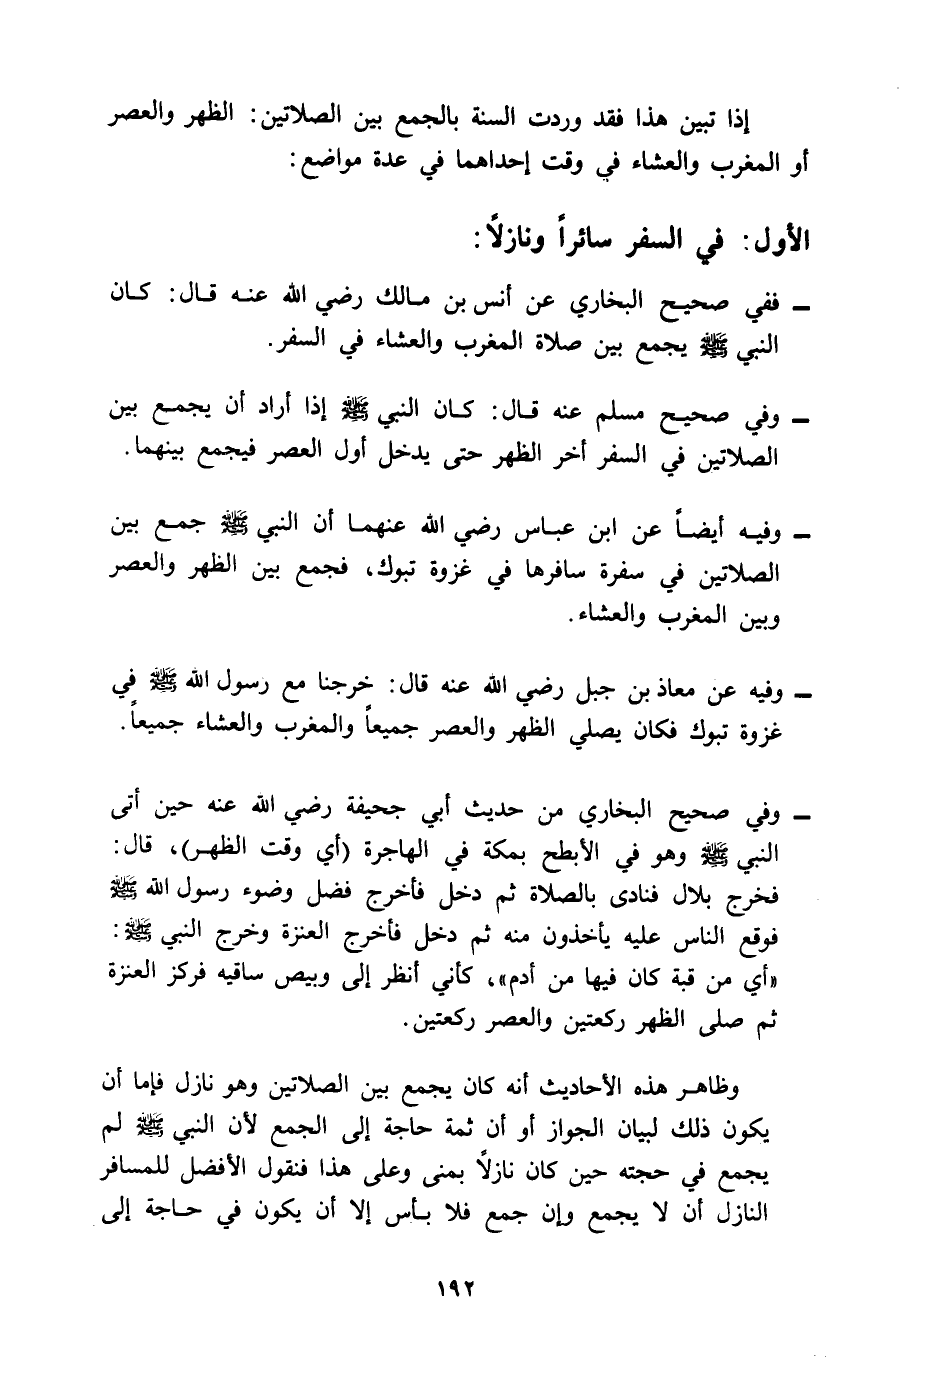 إذا تبين هذا فقد وردت السنة بالجمع بين الصلاتين: الظهر والعصر
أو المغرب والعشاء في وقت إحداهما في عدة مواضع:
الأول: في السفر سائراً ونازلاً:
ــ ففي صحيح البخاري عن أنس بن مالك رضي الله عنه قال: كان
النبي ﷺ يجمع بين صلاة المغرب والعشاء في السفر.
ــ وفي صحيح مسلم عنه قال: كان النبي ﷺ إذا أراد أن يجمع بين
الصلاتين في السفر أخر الظهر حتى يدخل أول العصر فيجمع بينهما.
ــ وفيه أيضاً عن ابن عباس رضي الله عنهما أن النبي ﷺ جمع بين
الصلاتين في سفرة سافرها في غزوة تبوك، فجمع بين الظهر والعصر
وبين المغرب والعشاء.
ــ وفيه عن معاذ بن جبل رضي الله عنه قال: خرجنا مع رسول الله ﷺ في
غزوة تبوك فكان يصلي الظهر والعصر جميعاً والمغرب والعشاء جميعاً.
ــ وفي صحيح البخاري من حديث أبي جحيفة رضي الله عنه حين أتى
النبي ﷺ وهو في الأبطح بمكة في الهاجرة (أي وقت الظهر)، قال:
فخرج بلال فنادى بالصلاة ثم دخل فأخرج فضل وضوء رسول الله ﷺ
فوقع الناس عليه يأخذون منه ثم دخل فأخرج العنزة وخرج النبي ﷺ:
«أي من قبة كان فيها من أدم»، كأني أنظر إلى وبيص ساقيه فركز العنزة
ثم صلى الظهر ركعتين والعصر ركعتين.
وظاهر هذه الأحاديث أنه كان يجمع بين الصلاتين وهو نازل فإما أن
يكون ذلك لبيان الجواز أو أن ثمة حاجة إلى الجمع لأن النبي ﷺ لم
يجمع في حجته حين كان نازلاً بمنى وعلى هذا فنقول الأفضل للمسافر
النازل أن لا يجمع وإن جمع فلا بأس إلا أن يكون في حاجة إلى
١٩٢